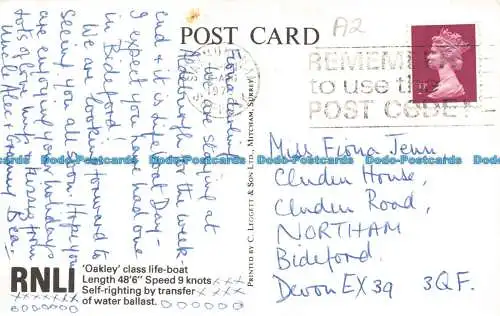 POST CARD
A2
REMEMBER
to use the
POST CODE
Fiona darling
We are staying at
Aldeburgh for the week-
end & it is Life Boat Day -
I expect you have had one
in Bideford!
We are looking forward to
seeing you all soon. Hope you
are enjoying your holidays
lots of love and kisses from
Uncle Alec & Granny Bea.
Miss Fiona Jenn
Cluden House,
Cluden Road,
NORTHAM
Bideford.
Devon EX39 3QF.
PRINTED BY C. LEGGETT & SON LTD., MITCHAM, SURREY
RNLI
'Oakley' class life-boat
Length 48'6" Speed 9 knots
Self-righting by transfer
of water ballast.
xxxxxxxx
ooooooo
xxx
xxxx
oooooo
Dodo-Postcards Dodo-Postcards Dodo-Postcards Dodo-Postcards Dodo-Postcards